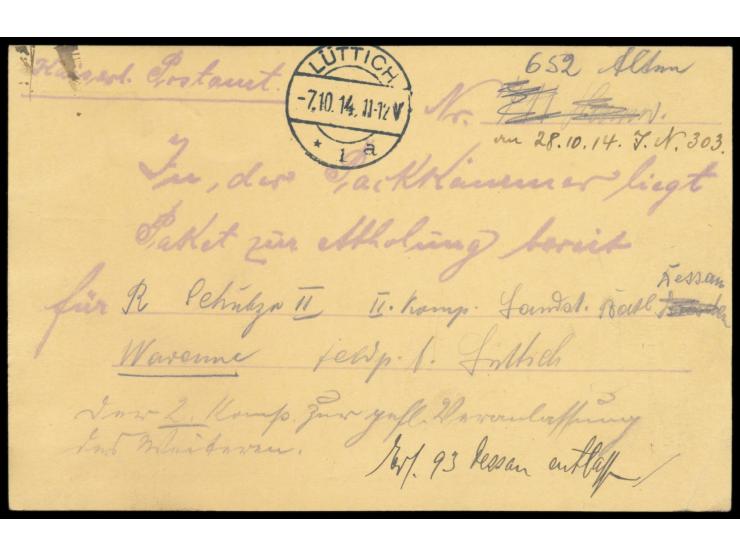 Kaiserl. Postamt.
LÜTTICH
-7.10.14. 11-12 V
* 1 a
652 Alten
Nr.
an 28.10.14. J. N. 303.
In der Packkammer liegt
Paket zur Abholung bereit
Dessau
für R Schulze II II. Komp. Landst. Batl.
Waremme Feldp. Lüttich
Der 2. Komp. zur gefl. Veranlassung
des Weiteren.
Ers. 93 Dessau entlass